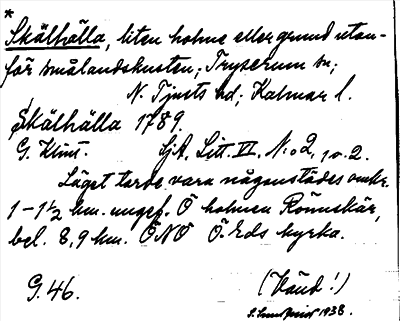 *
Skälhälla, liten holme eller grund utan-
för smålandskusten; Tryserum sn;
N. Tjusts hd; Kalmar l.
Skälhälla 1789.
G. Klint. SjA. Litt. VI. N:o 2, 1 o. 2.
Läget torde vara någonstädes omkr.
1-1½ km. ungef. Ö holmen Rönnskär,
bel. 8,9 km. ÖNÖ Ö. Eds kyrka.
G. 46. (Vänd!)
1938.